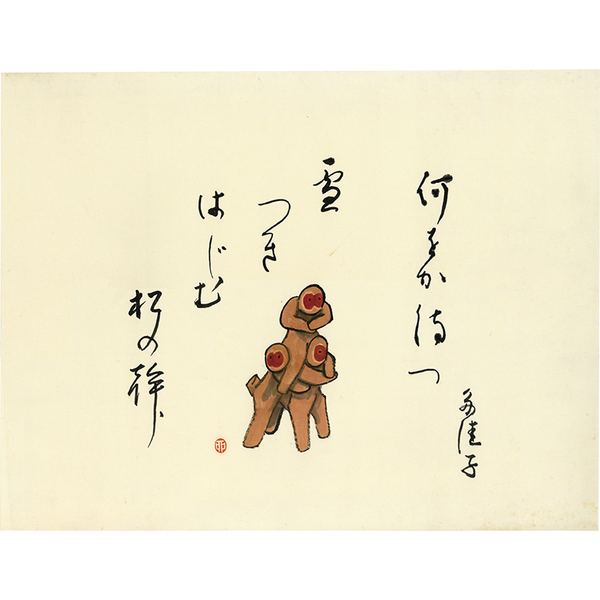 何をか待つ
雪
つき
はじむ
松の幹
多佳子